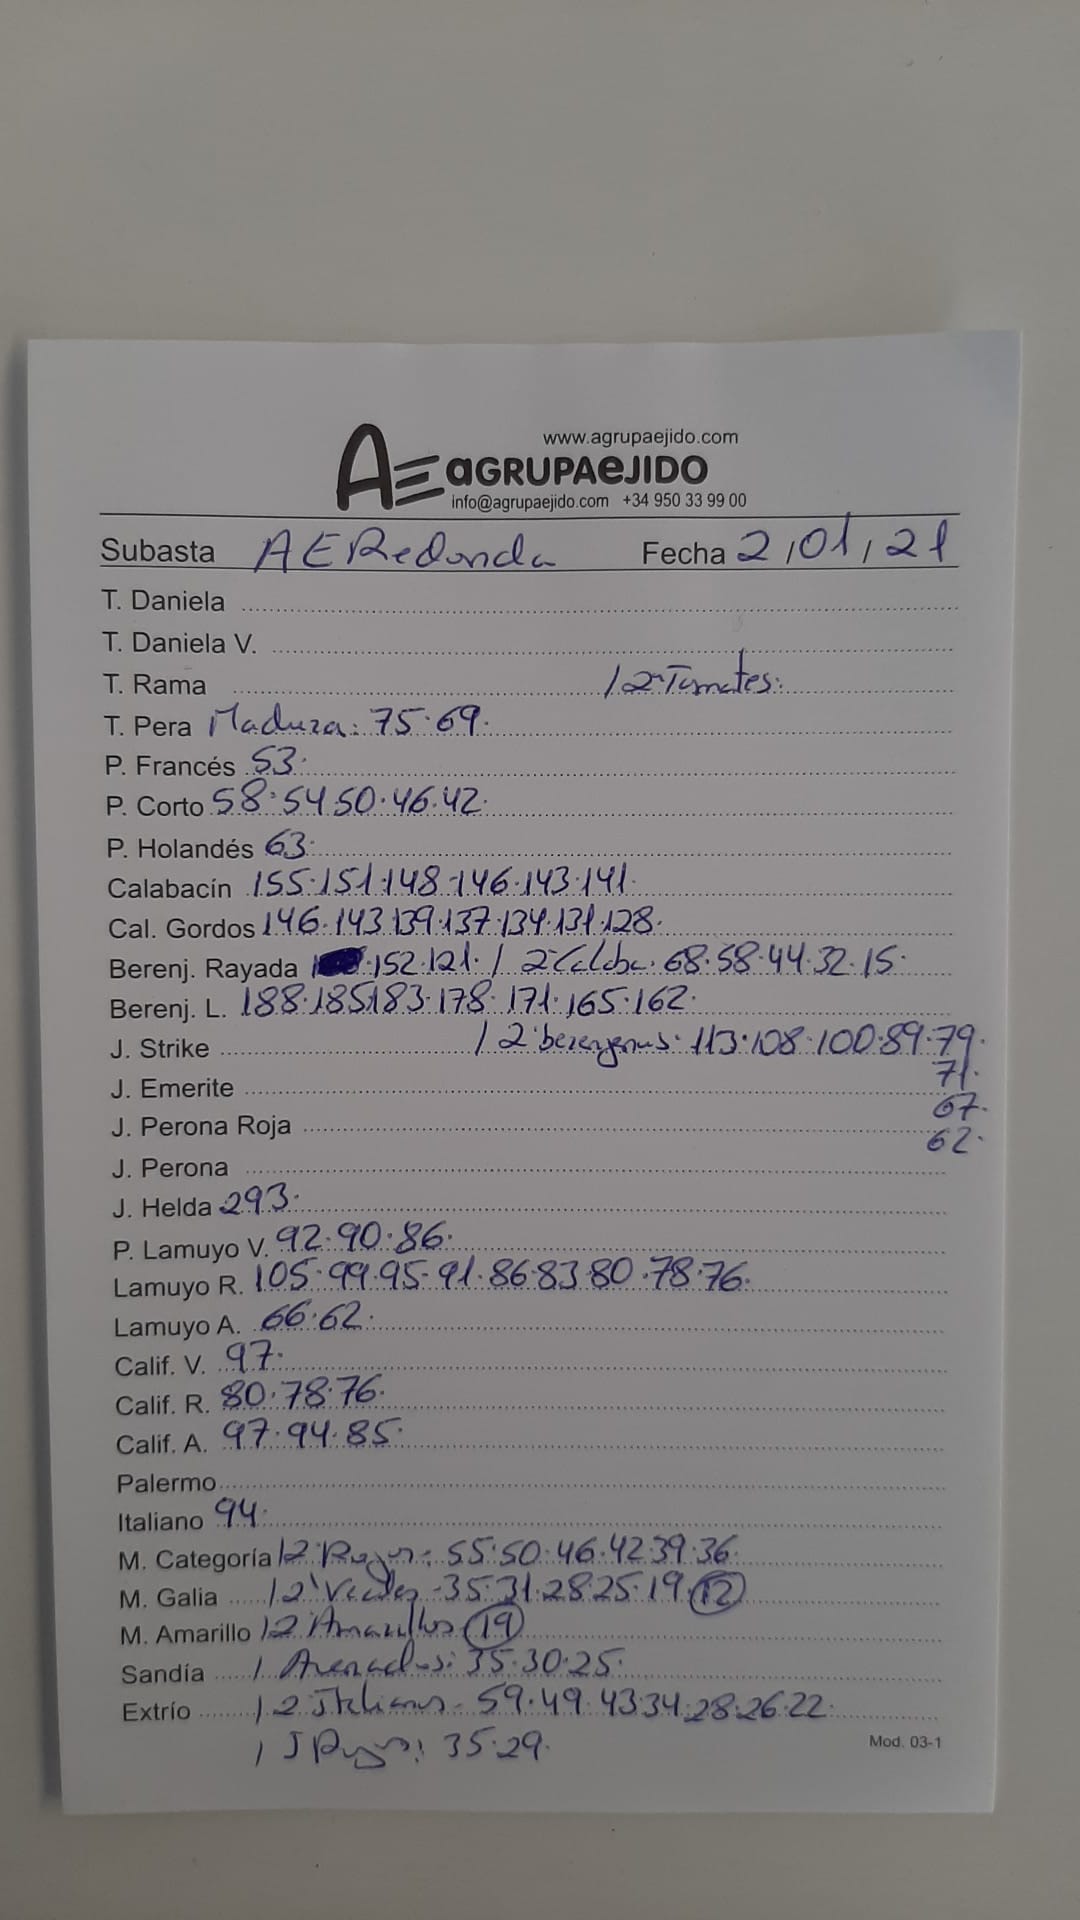 www.agrupaejido.com
AE aGRUPAeJIDO
info@agrupaejido.com +34 950 33 99 00
Subasta AERedonda Fecha 2/01/21
T. Daniela
T. Daniela V.
T. Rama / 2ª Tomates:
T. Pera Madura: 75·69·
P. Francés 53·
P. Corto 58·54 50·46·42·
P. Holandés 63·
Calabacín 155·151·148·146·143·141·
Cal. Gordos 146·143·139·137·134·131·128·
Berenj. Rayada 152·121· / 2ª Calaba· 68·58·44·32·15·
Berenj. L. 188·185·183·178·171·165·162·
J. Strike / 2ª berengenas· 113·108·100·89·79·
J. Emerite 71·
67·
J. Perona Roja 62·
J. Perona
J. Helda 293·
P. Lamuyo V. 92·90·86·
Lamuyo R. 105·99·95·91·86·83·80·78·76·
Lamuyo A. 66·62·
Calif. V. 97·
Calif. R. 80·78·76·
Calif. A. 97·94·85·
Palermo
Italiano 94·
M. Categoría / 2ª Rojos: 55·50·46·42·39·36·
M. Galia / 2ª Verdes - 35·31·28·25·19·12
M. Amarillo / 2ª Amarillos 19
Sandía / Asenados: 35·30·25·
Extrío / 2ª Italianos - 59·49·43·34·28·26·22·
/ J Rojos: 35·29·
Mod. 03-1